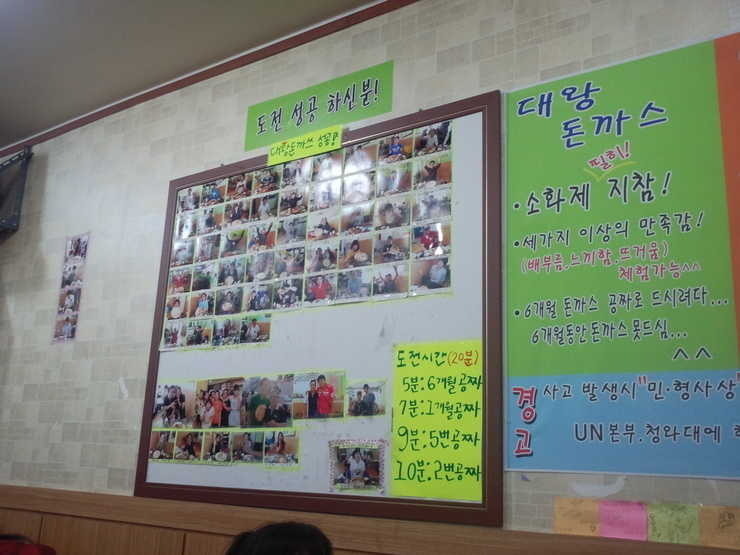 도전 성공 하신분!
대왕돈까쓰 성공!
도전시간(20분)
5분:6개월공짜
7분:1개월공짜
9분:5번공짜
10분:2번공짜
대왕
돈까스
필히!
•소화제 지참!
•세가지 이상의 만족감!
(배부름.느끼함.뜨거움)
체험가능^^
•6개월 돈까스 공짜로 드시려다...
6개월동안돈까스못드심...
^^
경고
사고 발생시"민·형사상"
UN본부.청와대에